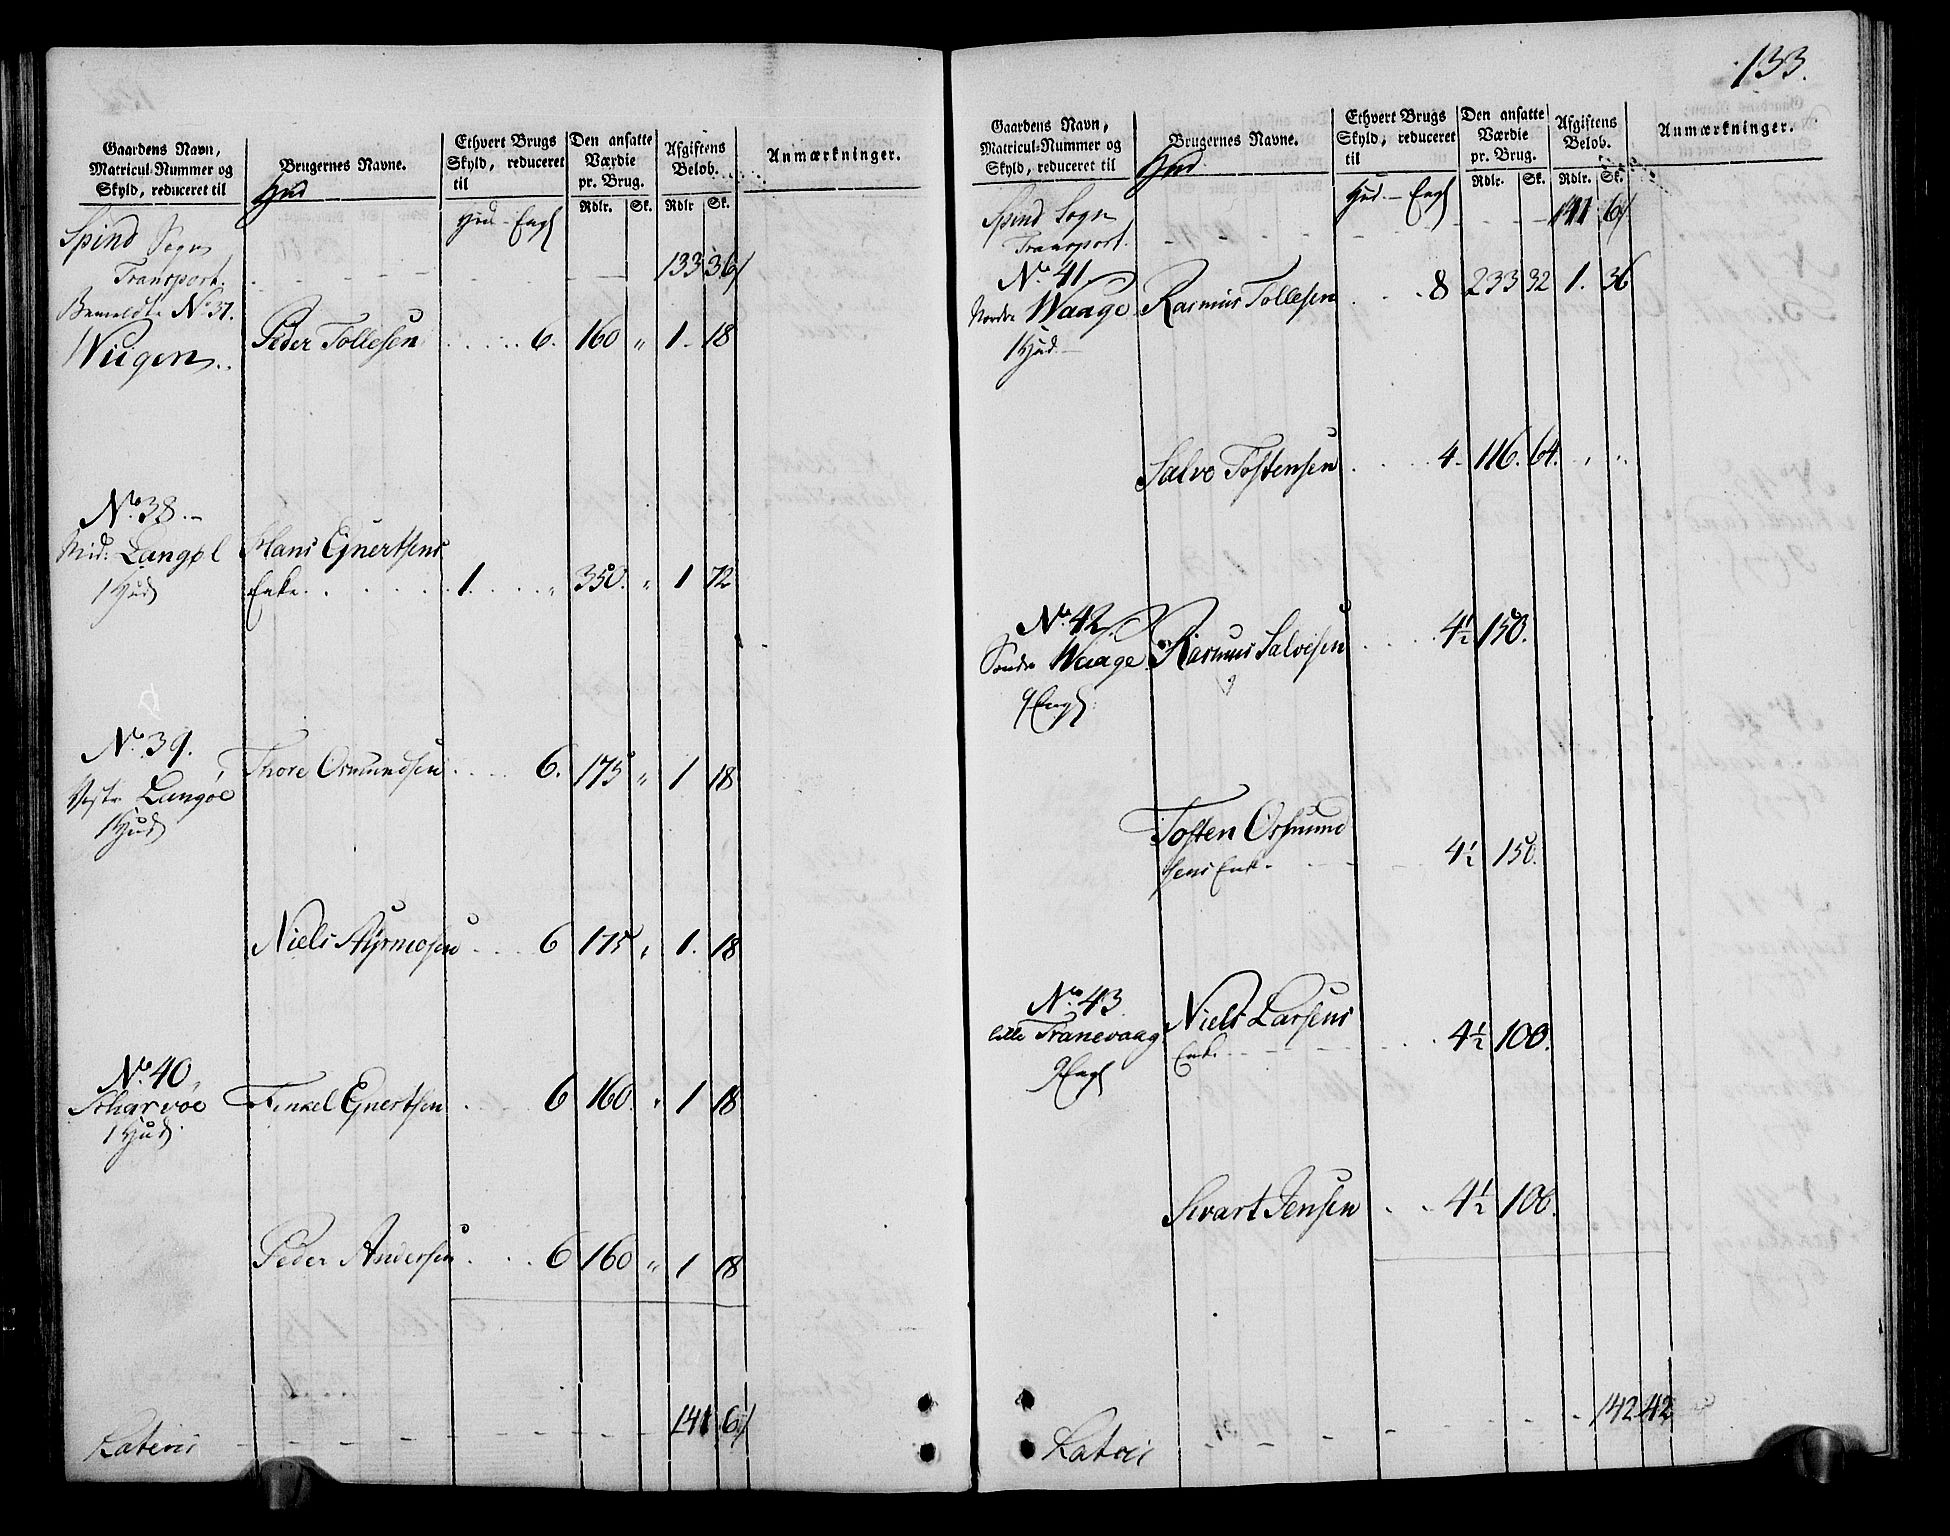 Gaardens Navn,
Matricul-Nummer og
Skyld, reduceret til
Brugernes Navne.
Hud
Ethvert Brugs
Skyld, reduceret
til
Hud – Engl
Den ansatte
Værdie
pr. Brug.
Rdlr. Sk.
Afgiftens
Beløb.
Rdlr Sk.
Anmærkninger.
Spind Sogn
Transport. 133 36
Bemeldte No 37.
Peder Tollesen 6. 160 „ 1 - 18
No. 38.
Mid: Langøl Hans Ejnertsens
1 Hud Enke 1 „ 350. „ 1 72
No. 39.
Thore Osmundsen 6. 175 „ 1 18
Vestr Langøe
1 Hud
Niels 6 175 „ 1. 18
No. 40.
Scharvøe Tenkel Ejnertsen 6 160. „ 1 18
1 Hud.
Peder Andersen 6 160 „ 1 18
Lateris 141 6
133.
Gaardens Navn,
Matricul-Nummer og
Skyld, reduceret til
Brugernes Navne.
Hud
Ethvert Brugs
Skyld, reduceret
til
Hud – Engl
Den ansatte
Værdie
pr. Brug.
Rdlr. Sk.
Afgiftens
Beløb.
Rdlr. Sk.
Anmærkninger.
Spind Sogn 141 6
Transport.
No. 41
Nordre Waage Rasmus Tollesen 8 233 32 1. 36
1 Hud
Salve Tostensen 4. 116. 64. „ „
No. 42
Søndre Waage Rasmus Salvesen 4½ 150.
9 Engl
Tosten Osmund
sens Enke 4½ 150.
No. 43
lille Tranevaag Niels Larsens
9 Engl Enke 4½ 100.
Sivart Jensen 4½ 100.
Lateris 142 42